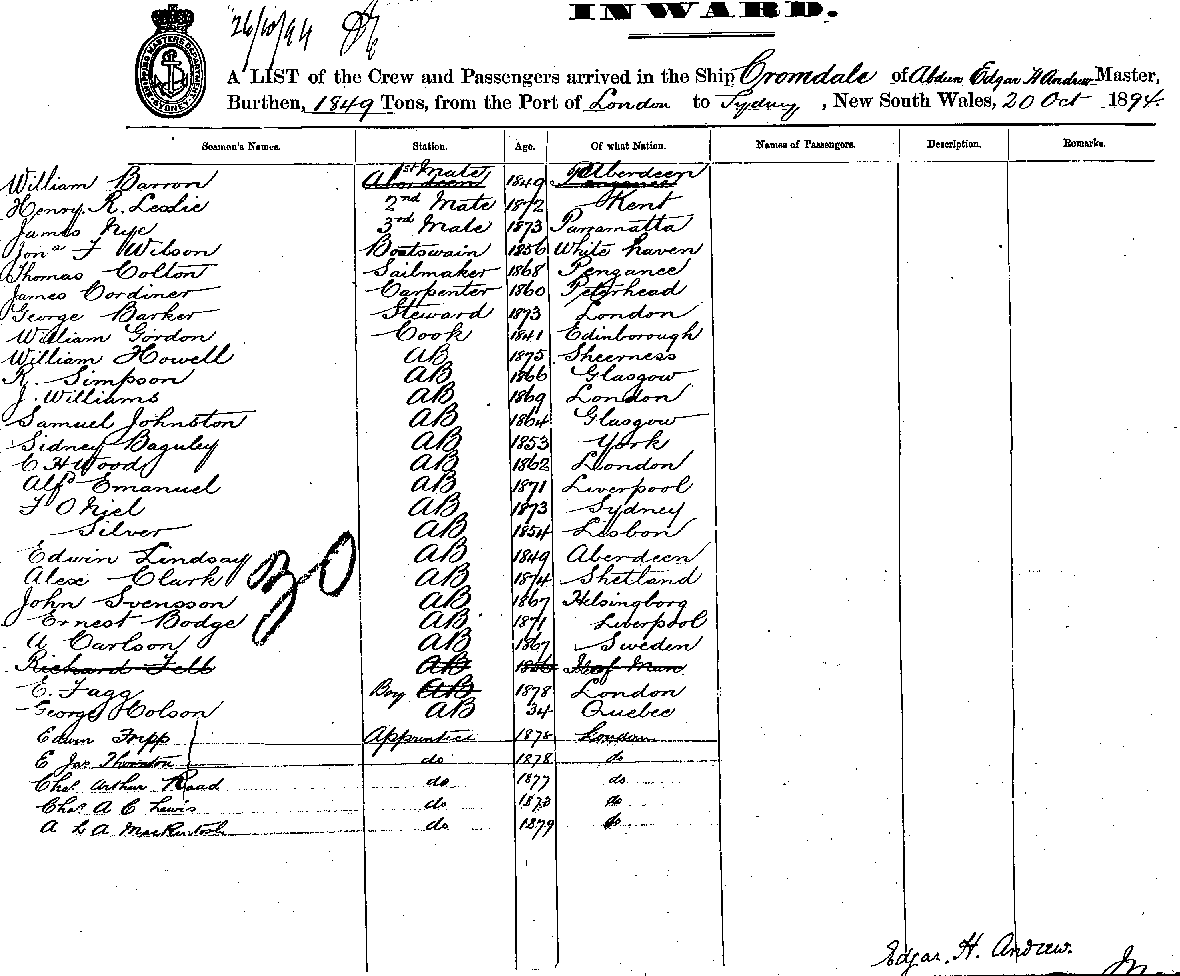 INWARD.
26/10/94
A LIST of the Crew and Passengers arrived in the Ship Cromdale of Abdeen Edgar H Andrew Master,
Burthen, 1849 Tons, from the Port of London to Sydney, New South Wales, 20 Oct 1894.
Seamen's Names. Station. Age. Of what Nation. Names of Passengers. Description. Remarks.
William Barron 1st Mate Aberdeen 1849 Aberdeen Penzance
Henry R. Leslie 2nd Mate 1872 Kent
James Nye 3rd Mate 1873 Parramatta
Jona F Wilson Boatswain 1856 White haven
Thomas Colton Sailmaker 1868 Pengance
James Cordiner Carpenter 1860 Peterhead
George Barker Steward 1873 London
William Gordon Cook 1841 Edinborough
William Howell AB 1875 Sheerness
R. Simpson AB 1866 Glasgow
J. Williams AB 1869 London
Samuel Johnston AB 1864 Glasgow
Sidney Baguley AB 1853 York
C H Wood AB 1862 London
Alfd Emanuel AB 1871 Liverpool
F O Niel AB 1873 Sydney
Silver AB 1854 Lisbon
Edwin Lindsay AB 1849 Aberdeen
Alex Clark AB 1874 Shetland
30
John Svensson AB 1867 Helsingborg
Ernest Bodge AB 1871 Liverpool
A Carlson AB 1867 Sweden
Richard Fell AB 1856 I of Man
E. Fagg Boy AB 1878 London
George Holson AB 34 Quebec
Edwin Fripp Apprentice 1878 London
E Jas Thornton do 1878 do
Chas Arthur Raad do 1877 do
Chas A C Lewis do 1873 do
A L A MacKintosh do 1879 do
Edgar. H. Andrew.